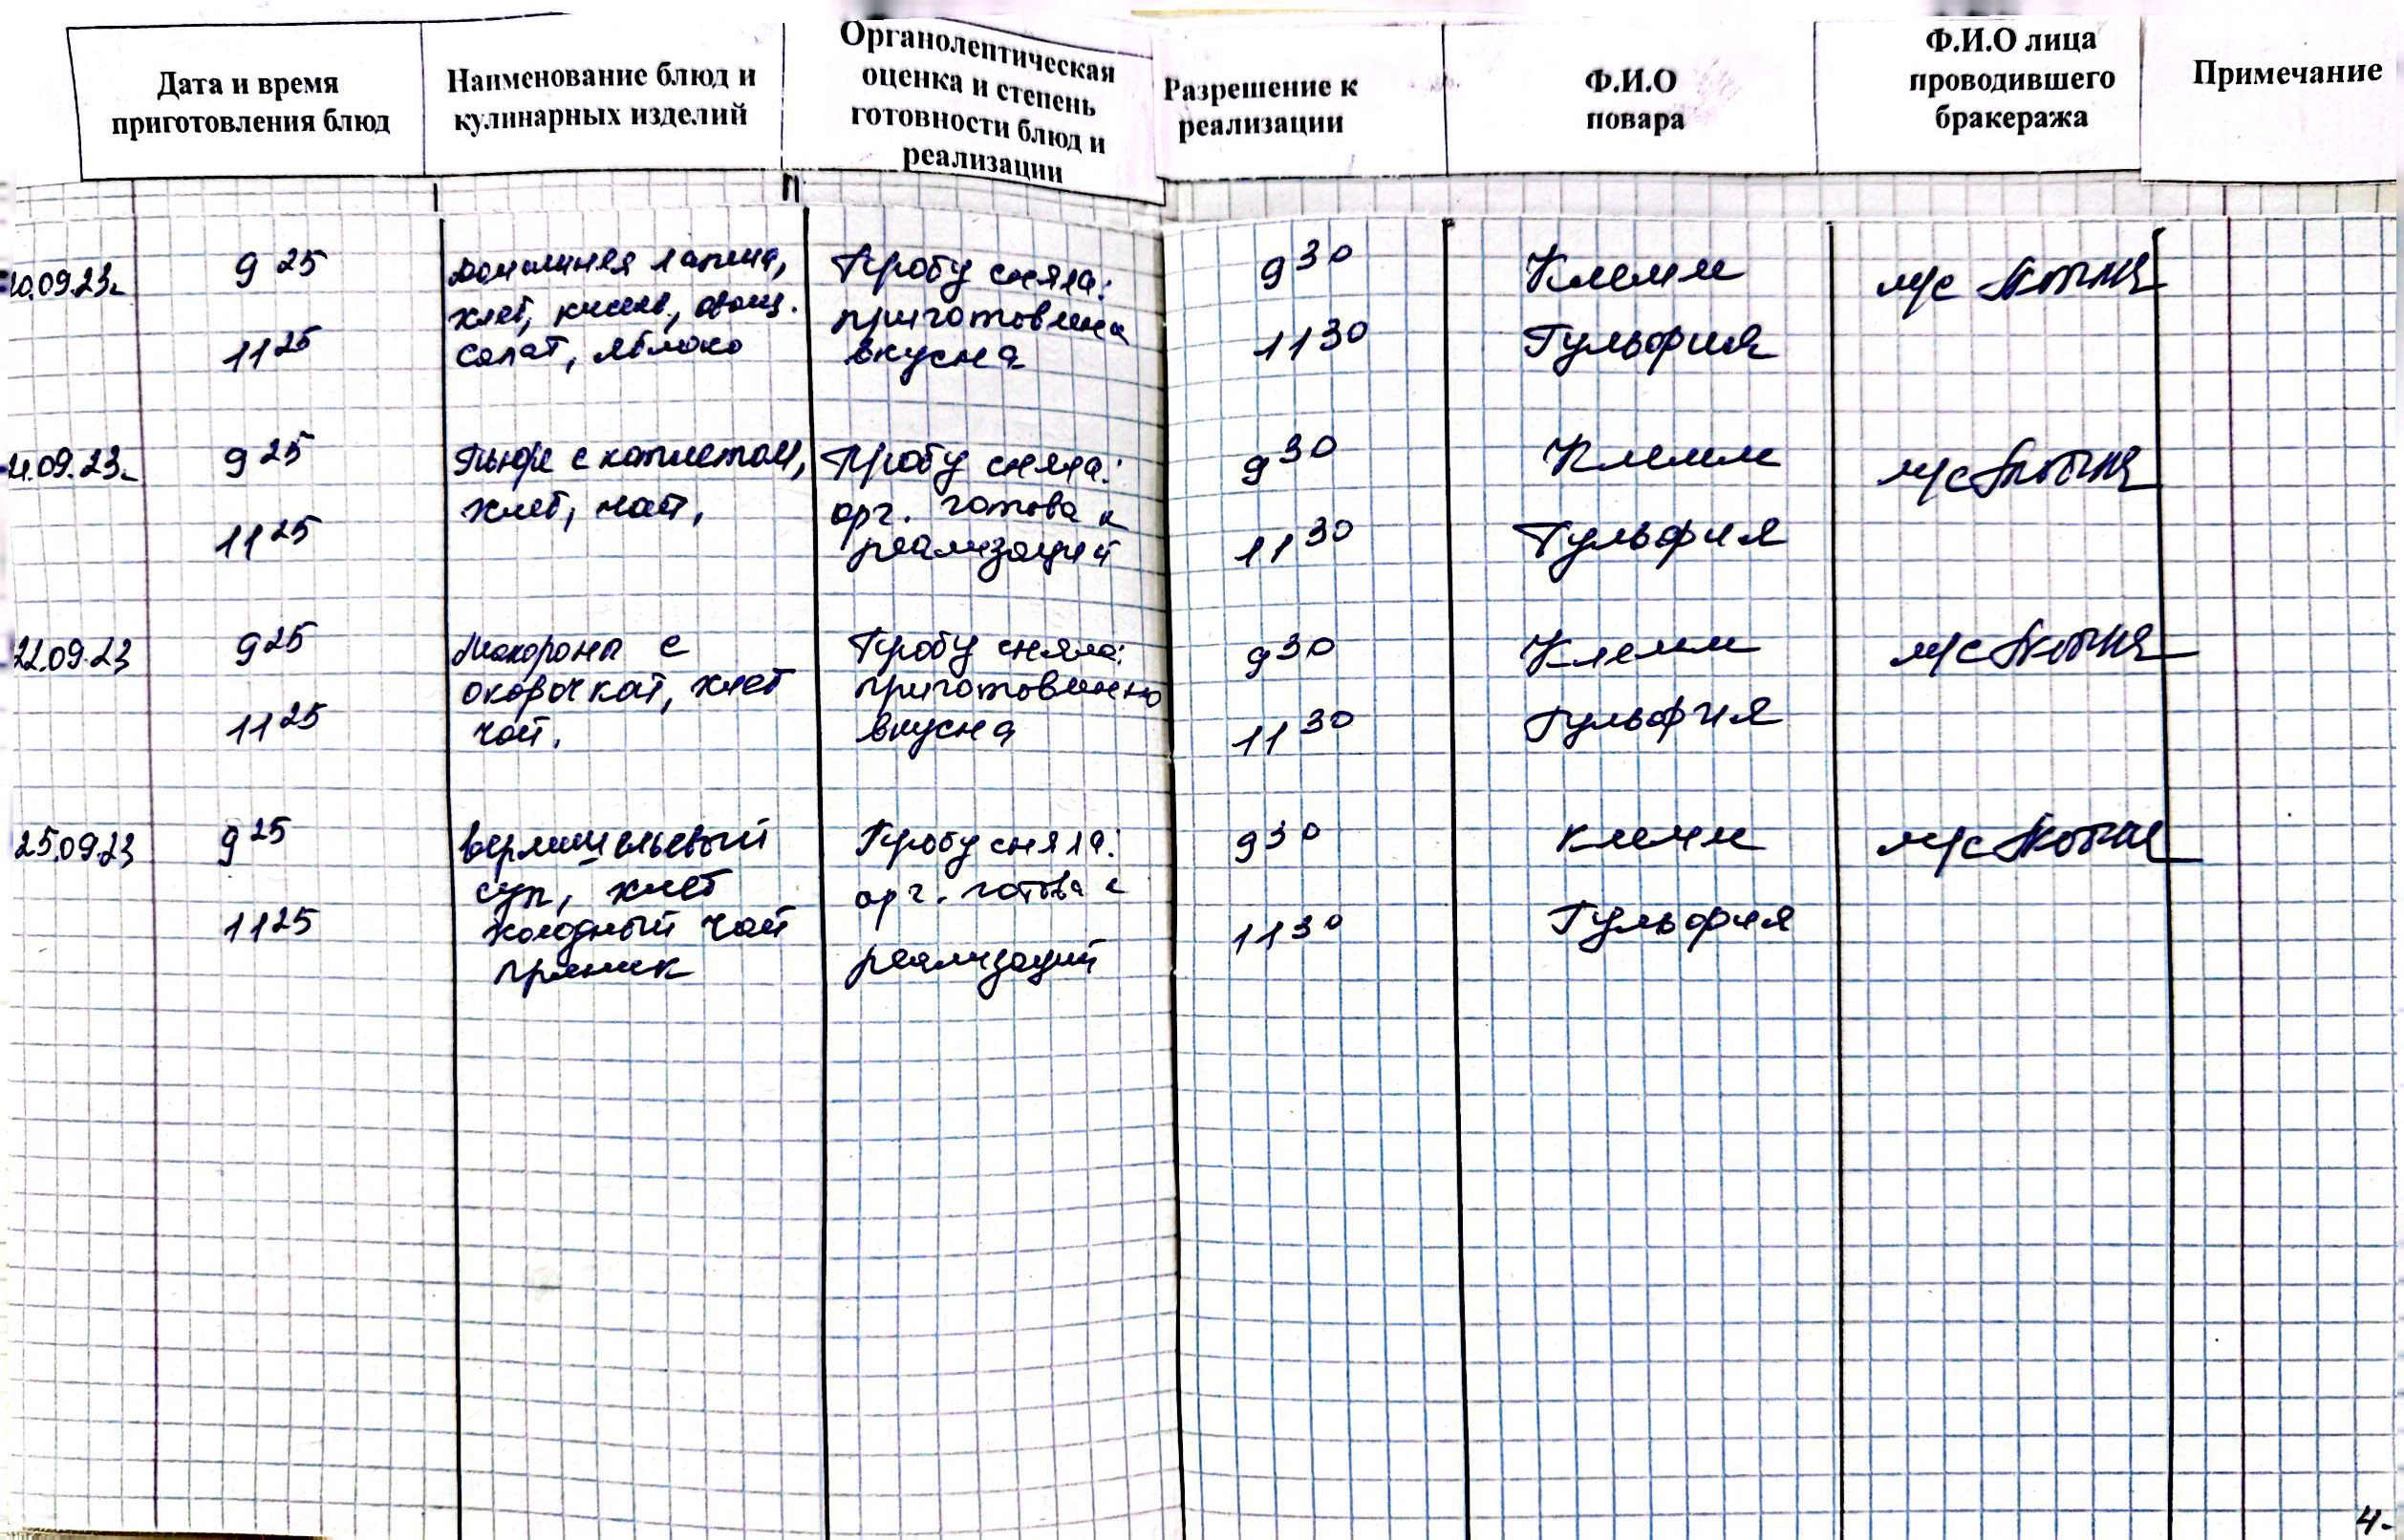 Дата и время
приготовления блюд
Наименование блюд и
кулинарных изделий
Органолептическая
оценка и степень
готовности блюд и
реализации
Разрешение к
реализации
Ф.И.О
повара
Ф.И.О лица
проводившего
бракеража
Примечание
20.09.23г
9 25
11 25
домашняя лапша,
хлеб, кисель, овощ.
салат, яблоко
Пробу сняла:
приготовлена
вкусна
9 30
11 30
Клемм
Гульфия
м/с
21.09.23г
9 25
11 25
Пьюре с котлетой,
хлеб, чай,
Пробу сняла:
орг. готова к
реализаций
9 30
11 30
Клемм
Гульфия
м/с
22.09.23
9 25
11 25
Макароны с
окорочкай, хлеб
чай.
Пробу сняла:
приготовлено
вкусна
9 30
11 30
Клемм
Гульфия
м/с
25.09.23
9 25
11 25
вермишельевый
суп, хлеб
холодный чай
пряник
Пробу сняла:
орг. готова к
реализаций
9 30
11 30
Клемм
Гульфия
м/с
4-